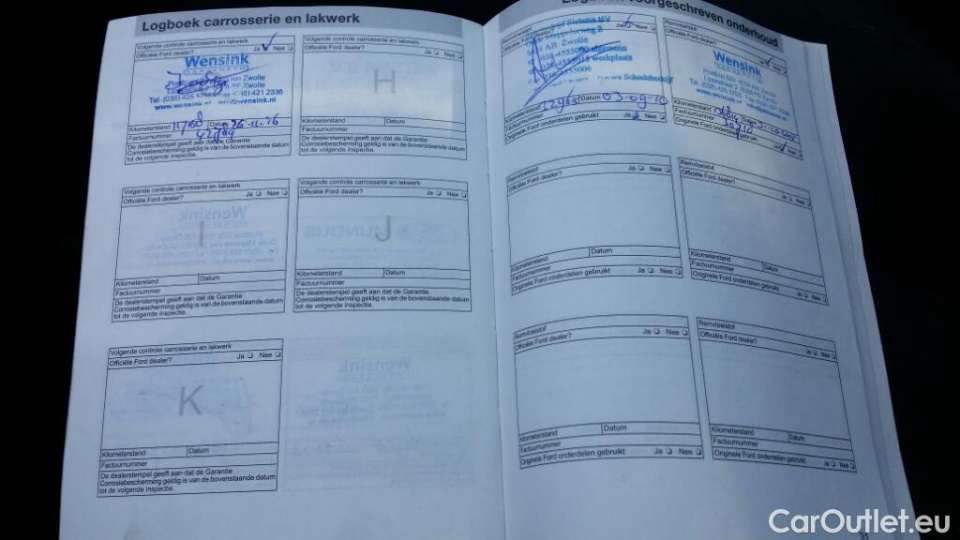 Logboek carrosserie en lakwerk
Volgende controle carrosserie en lakwerk
Officiële Ford dealer? Ja Nee
Wensink
Zwolle
Tel. (038) 42
421 2336
wensink.nl
Kilometerstand Datum 26-11-16
Factuurnummer
De dealerstempel geeft aan dat de Garantie
Corrosiebescherming geldig is van de bovenstaande datum
tot de volgende inspectie.
Volgende controle carrosserie en lakwerk
Officiële Ford dealer? Ja Nee
H
Kilometerstand Datum
Factuurnummer
De dealerstempel geeft aan dat de Garantie
Corrosiebescherming geldig is van de bovenstaande datum
tot de volgende inspectie.
Volgende controle carrosserie en lakwerk
Officiële Ford dealer? Ja Nee
I
Kilometerstand Datum
Factuurnummer
De dealerstempel geeft aan dat de Garantie
Corrosiebescherming geldig is van de bovenstaande datum
tot de volgende inspectie.
Volgende controle carrosserie en lakwerk
Officiële Ford dealer? Ja Nee
J
Kilometerstand Datum
Factuurnummer
De dealerstempel geeft aan dat de Garantie
Corrosiebescherming geldig is van de bovenstaande datum
tot de volgende inspectie.
Volgende controle carrosserie en lakwerk
Officiële Ford dealer? Ja Nee
K
Kilometerstand Datum
Factuurnummer
De dealerstempel geeft aan dat de Garantie
Corrosiebescherming geldig is van de bovenstaande datum
tot de volgende inspectie.
voorgeschreven onderhoud
Remvloeistof
Nee
2
AB Zwolle
werkplaats
Schadebedrijf
Kilometerstand Datum 03-09-10
Factuurnummer
Originele Ford onderdelen gebruikt Ja Nee
Remvloeistof
Officiële Ford dealer?
Wensink
Kilometerstand
Factuurnummer
Originele Ford onderdelen gebruikt
Remvloeistof
Officiële Ford dealer? Ja Nee
Kilometerstand Datum
Factuurnummer
Originele Ford onderdelen gebruikt Ja Nee
Remvloeistof
Officiële Ford dealer? Ja Nee
Kilometerstand Datum
Factuurnummer
Originele Ford onderdelen gebruikt Ja Nee
Remvloeistof
Officiële Ford dealer? Ja Nee
Kilometerstand Datum
Factuurnummer
Originele Ford onderdelen gebruikt Ja Nee
Remvloeistof
Officiële Ford dealer? Ja Nee
Kilometerstand Datum
Factuurnummer
Originele Ford onderdelen gebruikt Ja Nee
CarOutlet.eu